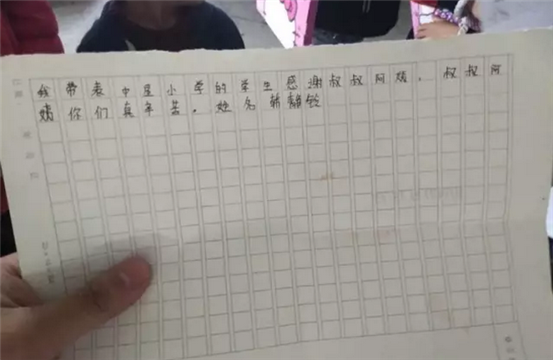 我带表中星小学的学生感谢叔叔阿姨，叔叔阿
姨你们真辛苦。姓名